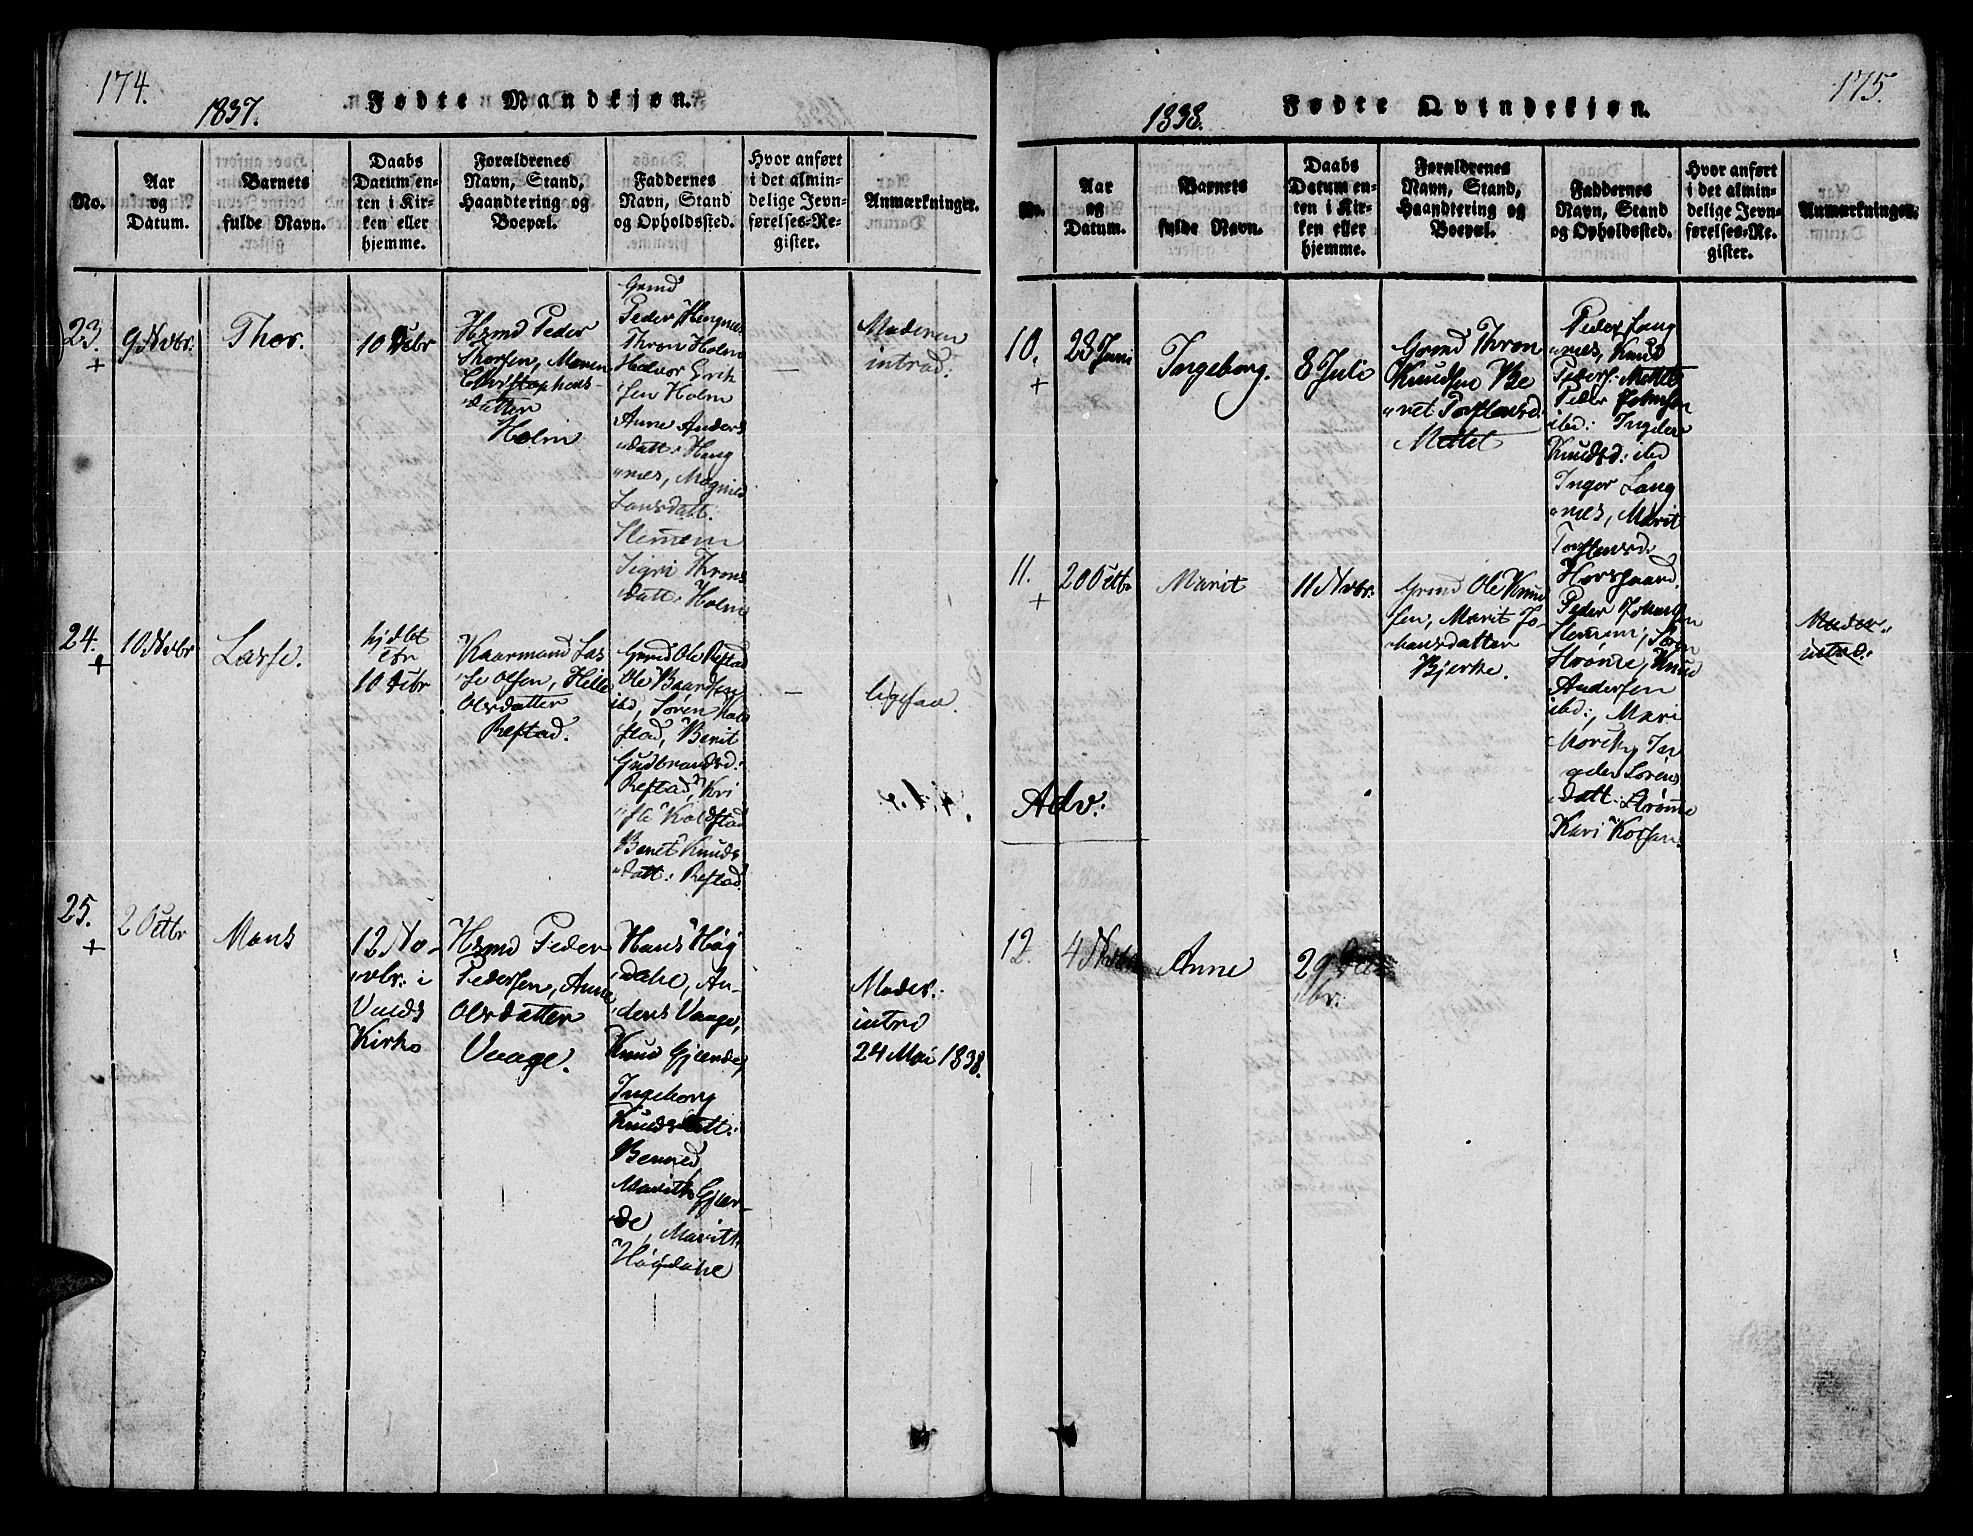 174.
1837.
Fødte Mandkjøn.
No.
Aar
og
Datum.
Barnets
fulde Navn.
Daabs
Datum en-
ten i Kir-
ken eller
hjemme.
Forældrenes
Navn, Stand,
Haandtering og
Boepæl.
Faddernes
Navn, Stand
og Opholdssted.
Hvor anført
i det almin-
delige Jevn-
førelses-Re-
gister.
Anmærkninger.
23.
+
9 Nvbr.
Thor.
10 Debr
Hsmd Peder
Thorsen, Maren
Christophers-
datter
Holm
Grmd
Peder Hengnes
Thron Holm
Halvor Erik
sen Holm
Anne Anders
datt: Heng
nes, Magnild
Larsdatt.
Slemem
Sigri Throns
datt: Holm
—
Moderen
introd:
24.
+
10 Nvbr
Lasse.
hjdbt
10 Debr
Kaarmand Las
se Olsen,
Olsdatter
Refstad.
Grmd Ole Refstad
Ole Baardsen
ibd, Søren Kold
stad, Berit
Gudbrandsd:
Refstad, Kri
Koldstad
Beret Knuds
datt: Refstad
—
ligesaa.
25.
+
2 Octbr
Mons
12 No-
vbr: i
Veids
Kirke
Hsmd Peder
Pedersen, Anne
Olsdatter
Vaage.
Hans Høg
dahl, An-
ders Vaage,
Knud Gjerde,
Ingeborg
Knudsdatt:
Marith Gjær-
de, Marith
Høgdahl
Moder:
intrd
24 Mai 1838.
175.
1838.
Fødte Qvindekjøn.
No.
Aar
og
Datum.
Barnets
fulde Navn.
Daabs
Datum en-
ten i Kir-
ken eller
hjemme.
Forældrenes
Navn, Stand,
Haandtering og
Boepæl.
Faddernes
Navn, Stand
og Opholdssted.
Hvor anført
i det almin-
delige Jevn-
førelses-Re-
gister.
Anmærkninger.
10.
+
23 Juni
Ingeborg.
8 Juli
Grmd Thron
Knudsen Be
ret Torstensd:
Mettet
Peder Lang
nes, Knud
Peders: Mettet
Peder Johnsen
ibd: Ingeler
Knudsd: ibd
Inger Lang
nes, Marit
Torstensd:
Horsgaard.
11.
+
20 Octbr
Marit
11 Nvbr.
Grmd Ole Knud
sen, Marit Jo-
hansdatter
Bjerke.
Peder Johans
Slemem, Søren
Strømme, Knud
Andersen
ibd:, Mari
In
geler Sørens
datt: Strømme
Kari
Moder:
introd:
Adv:
12.
4 Nvbr
Anne
29 De
cbr.